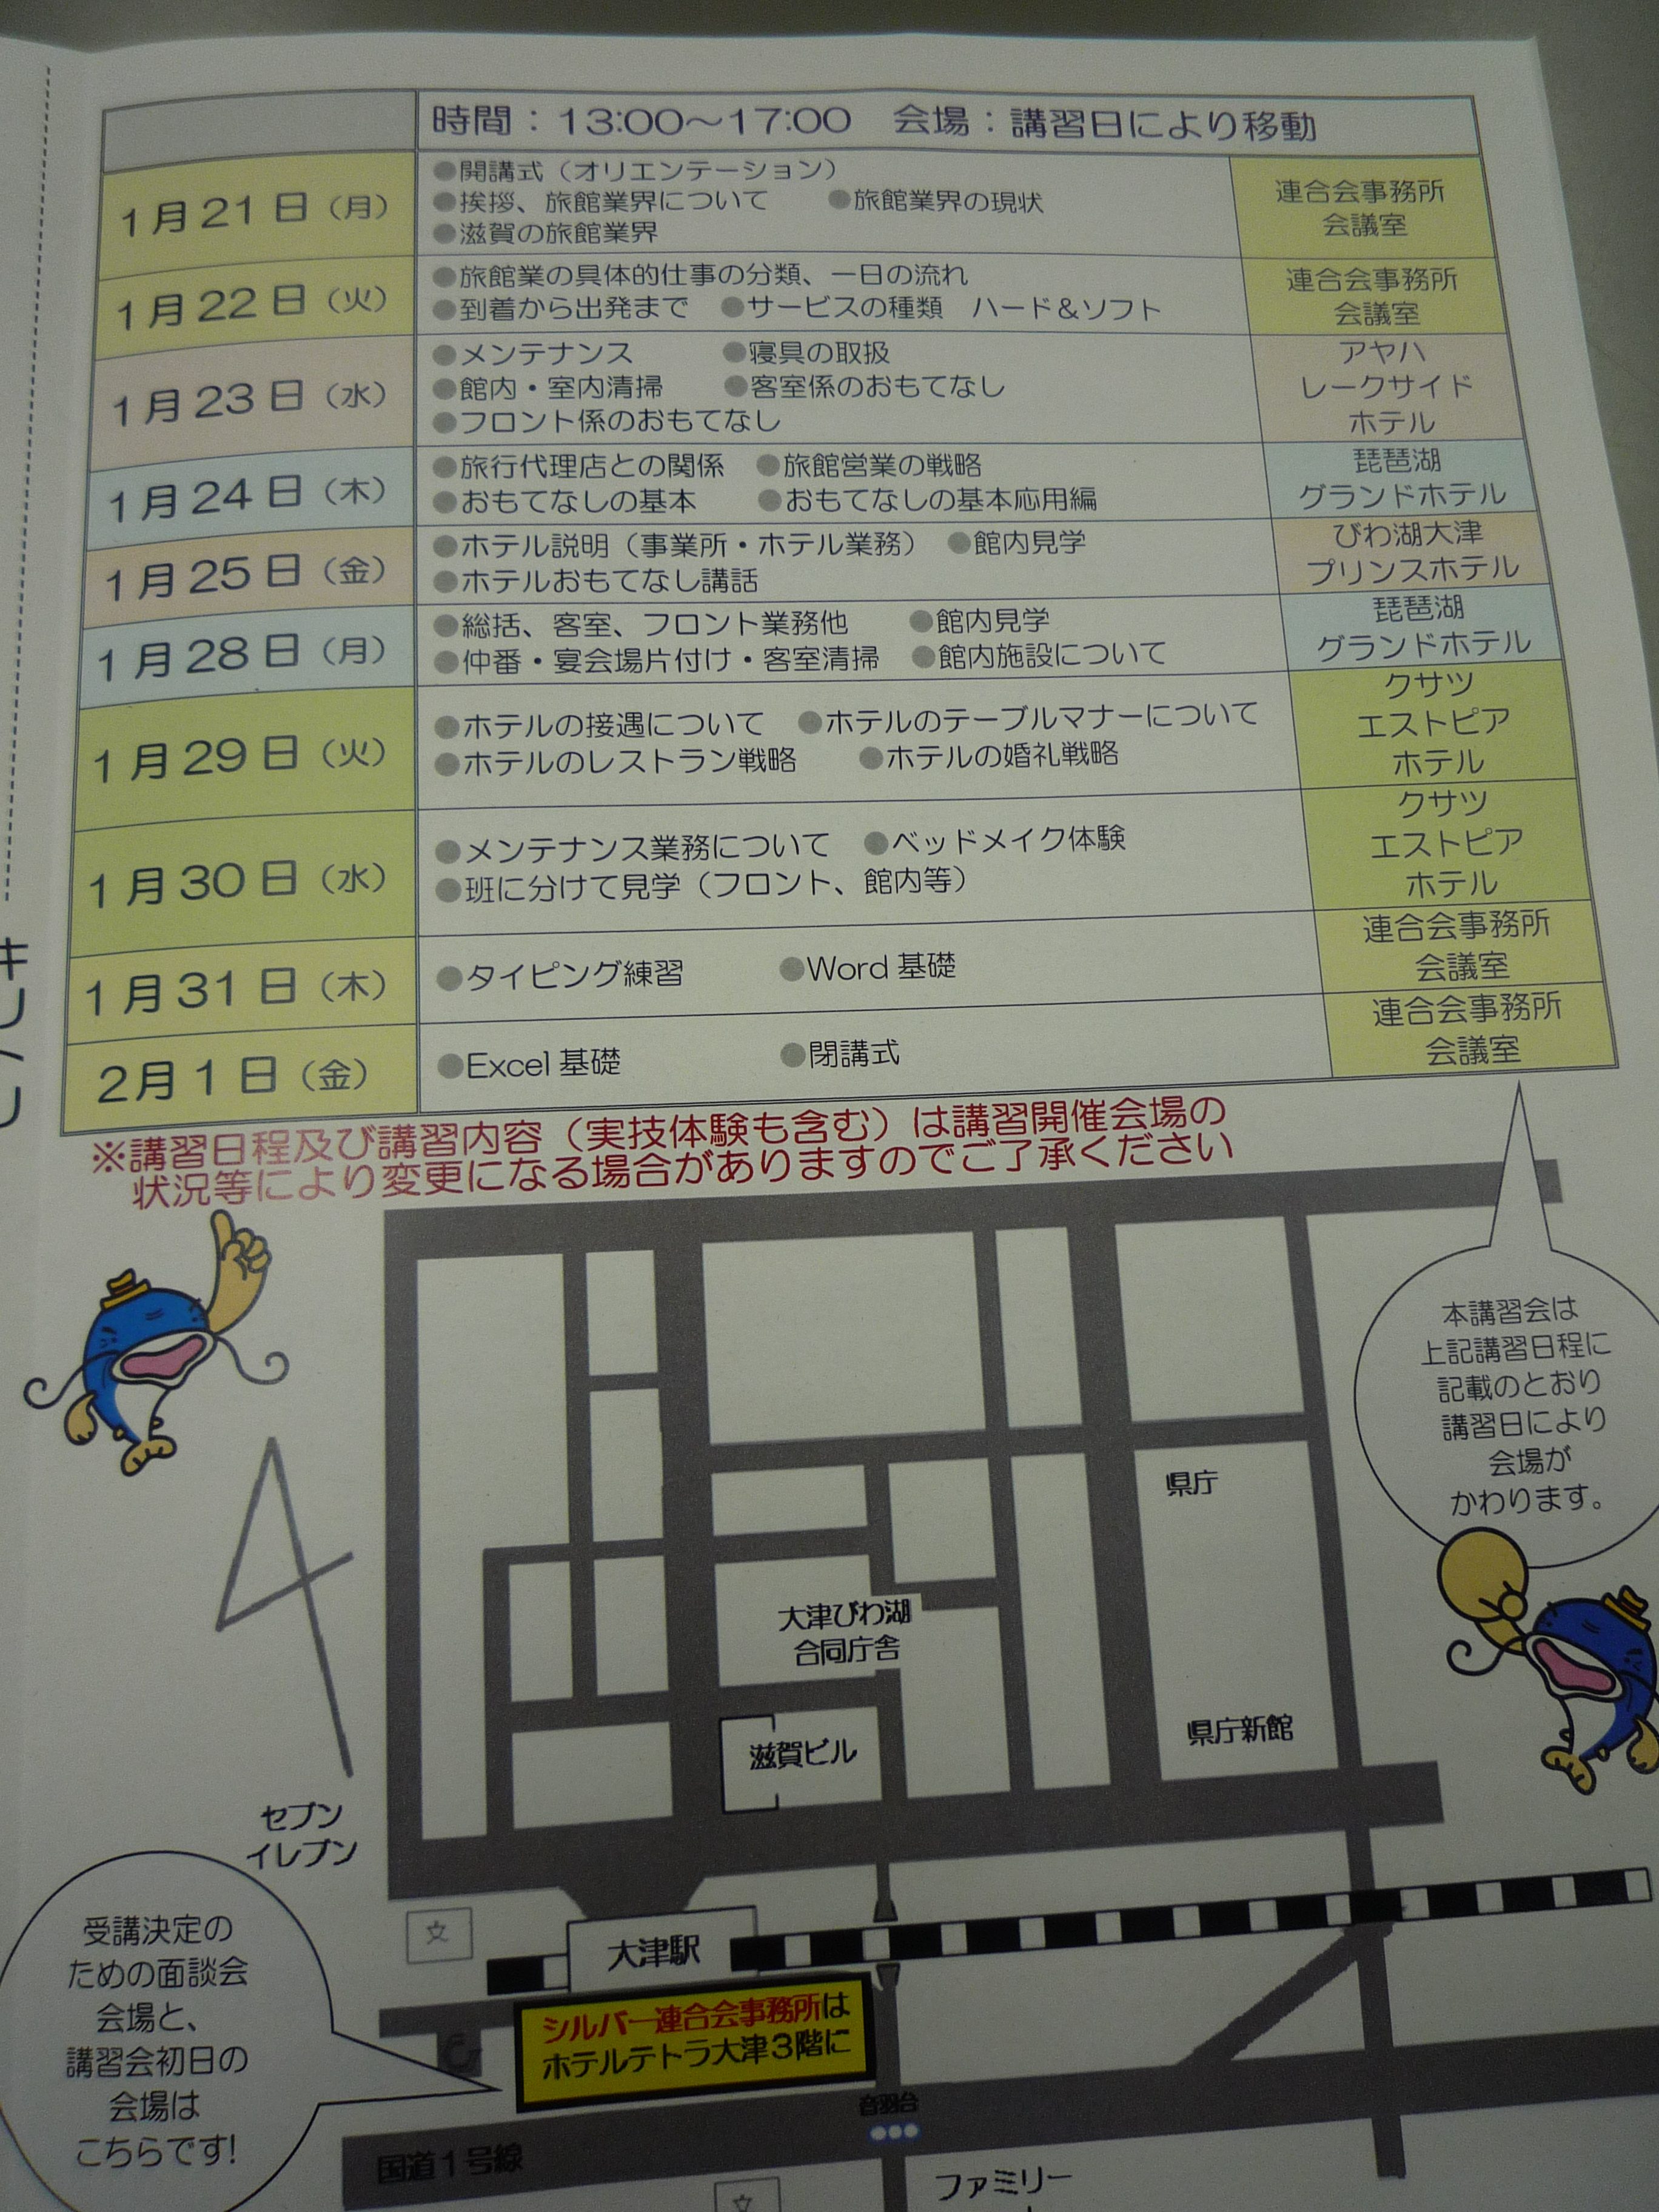 時間：13:00～17:00　会場：講習日により移動
1月21日（月）
●開講式（オリエンテーション）
●挨拶、旅館業界について　●旅館業界の現状
●滋賀の旅館業界
連合会事務所
会議室
1月22日（火）
●旅館業の具体的仕事の分類、一日の流れ
●到着から出発まで　●サービスの種類　ハード＆ソフト
連合会事務所
会議室
1月23日（水）
●メンテナンス　●寝具の取扱
●館内・室内清掃　●客室係のおもてなし
●フロント係のおもてなし
アヤハ
レークサイド
ホテル
1月24日（木）
●旅行代理店との関係　●旅館営業の戦略
●おもてなしの基本　●おもてなしの基本応用編
琵琶湖
グランドホテル
1月25日（金）
●ホテル説明（事業所・ホテル業務）　●館内見学
●ホテルおもてなし講話
びわ湖大津
プリンスホテル
1月28日（月）
●総括、客室、フロント業務他　●館内見学
●仲番・宴会場片付け・客室清掃　●館内施設について
琵琶湖
グランドホテル
1月29日（火）
●ホテルの接遇について　●ホテルのテーブルマナーについて
●ホテルのレストラン戦略　●ホテルの婚礼戦略
クサツ
エストピア
ホテル
1月30日（水）
●メンテナンス業務について　●ベッドメイク体験
●班に分けて見学（フロント、館内等）
クサツ
エストピア
ホテル
1月31日（木）
●タイピング練習　●Word 基礎
連合会事務所
会議室
2月1日（金）
●Excel 基礎　●閉講式
連合会事務所
会議室
※講習日程及び講習内容（実技体験も含む）は講習開催会場の
状況等により変更になる場合がありますのでご了承ください
本講習会は
上記講習日程に
記載のとおり
講習日により
会場が
かわります。
県庁
大津びわ湖
合同庁舎
県庁新館
滋賀ビル
セブン
イレブン
文
大津駅
シルバー連合会事務所は
ホテルテトラ大津3階に
受講決定の
ための面談会
会場と、
講習会初日の
会場は
こちらです!
音羽台
国道1号線
ファミリー
文